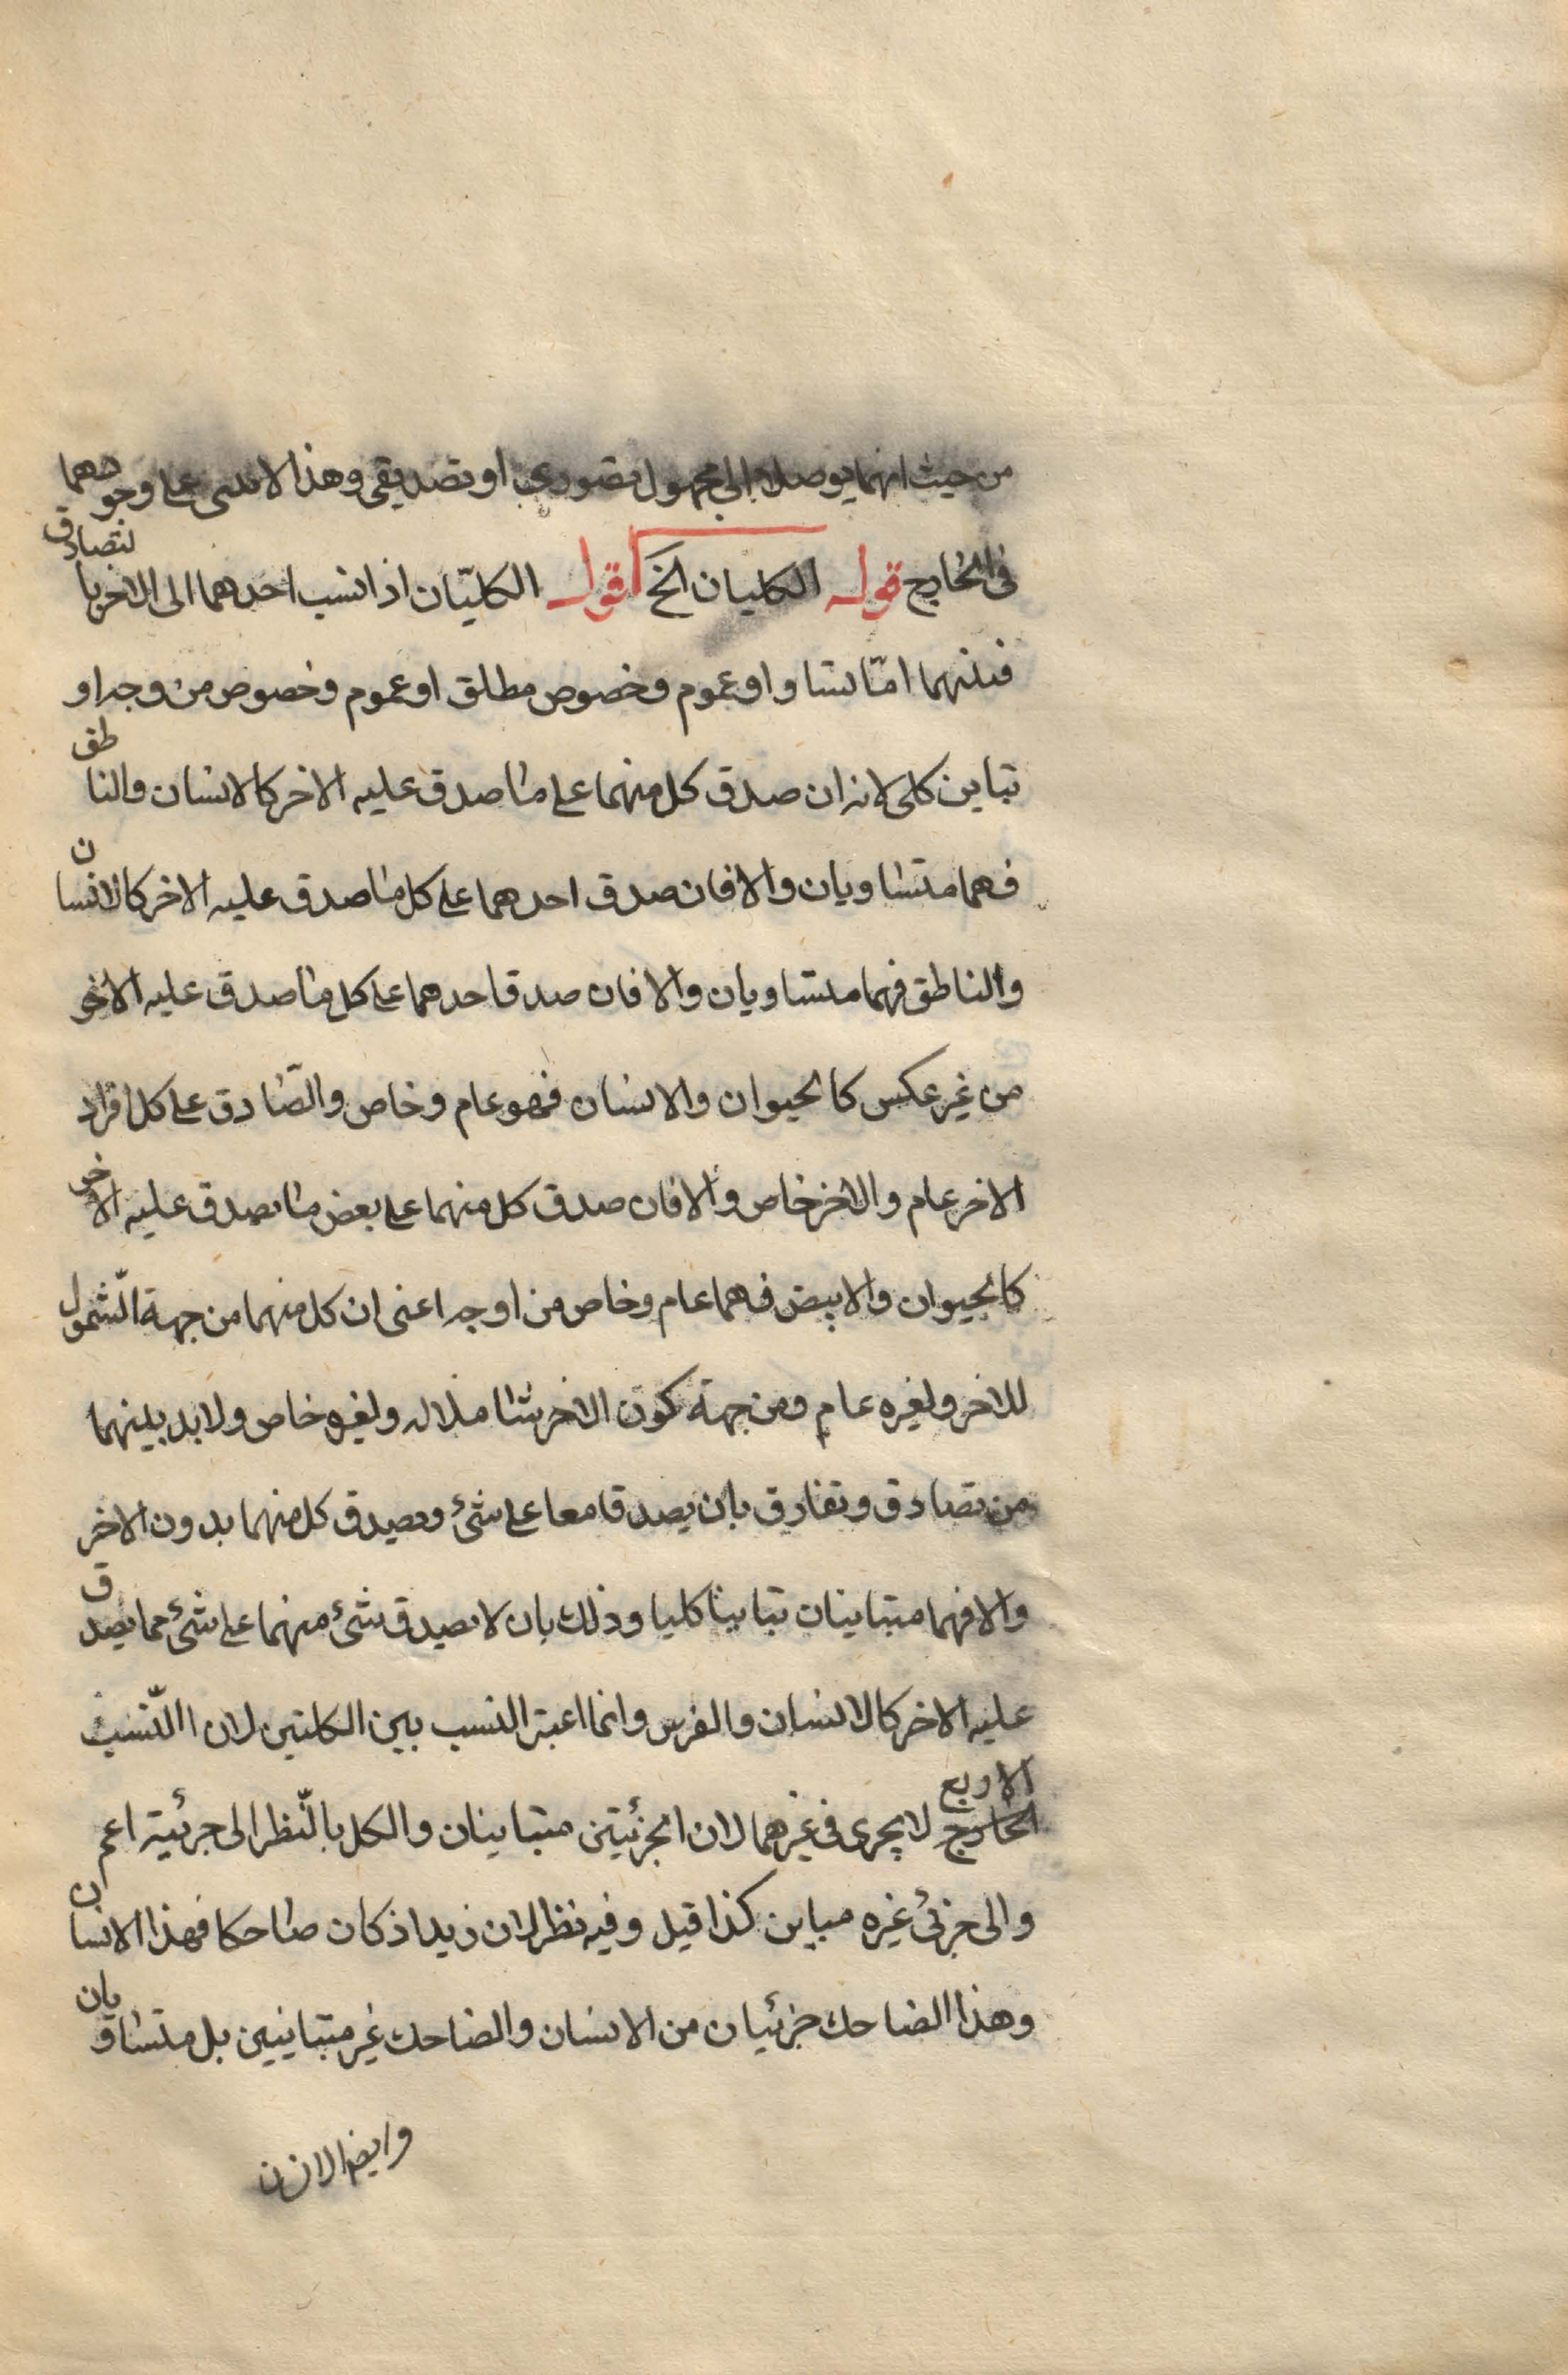 من حيث انهما يوصلان الى مجهول تصورى او تصديقى وهذا لا يبتنى على وجودهما
فى الخارج قوله الكليان الخ اقول الكليّان اذا نسب احدهما الى الاخر بالتصادق
فبينهما امّا تساو او عموم وخصوص مطلق او عموم وخصوص من وجه او
تباين كلى لانه ان صدق كل منهما على ما صدق عليه الاخر كالانسان والناطق
فهما متساويان والا فان صدق احدهما على كل ما صدق عليه الاخر كالانسان
والناطق فهما متساويان والا فان صدق احدهما على كل ما صدق عليه الاخر
من غير عكس كالحيوان والانسان فهو عام وخاص والصّادق على كل افراد
الاخر عام والاخر خاص والا فان صدق كل منهما على بعض ما يصدق عليه الاخر
كالحيوان والابيض فهما عام وخاص من اوجه اعنى ان كل منهما من جهة الشّمول
للاخر ولغيره عام ومن جهة كون الاخر شاملا له ولغيره خاص ولا بد بينهما
من تصادق وتفارق بان يصدقا معا على شئ ويصدق كل منهما بدون الاخر
والا فهما متباينان تباينا كليا وذلك بان لا يصدق شئ منهما على شئ مما يصدق
عليه الاخر كالانسان والفرس وانما اعتبر النسب بين الكليتين لان االنّسب
الخارج الاربع لا يجرى فى غيرهما لان الجزئيتين متباينان والكل بالنّظر الى جزئيته اعم
والى جزئ غيره مباين كذا قيل وفيه نظر لان زيدا اذ كان ضاحكا فهذا الانسان
وهذا الضاحك جزئيان من الانسان والضاحك غير متباينين بل متساويان
وايضا لان